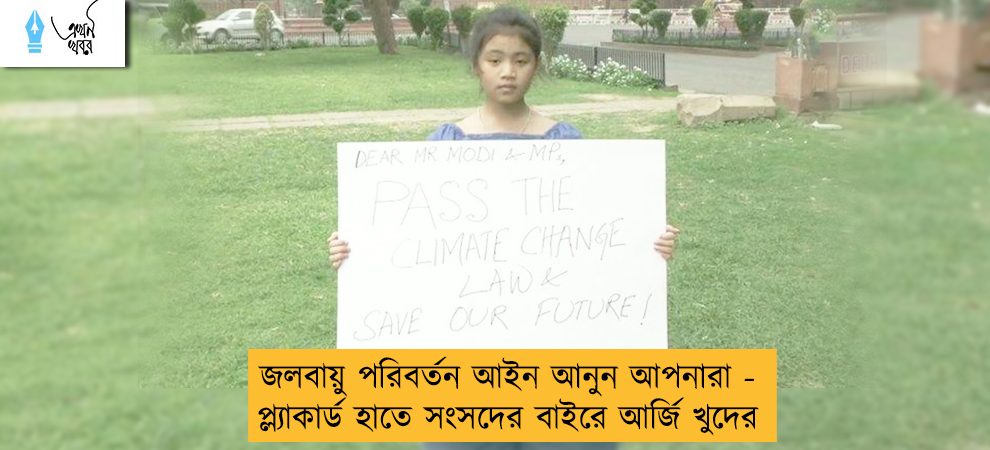 এখন
খবর
DEAR MR MODI & MPs,
PASS THE
CLIMATE CHANGE
LAW &
SAVE OUR FUTURE!
জলবায়ু পরিবর্তন আইন আনুন আপনারা -
প্ল্যাকার্ড হাতে সংসদের বাইরে আর্জি খুদের